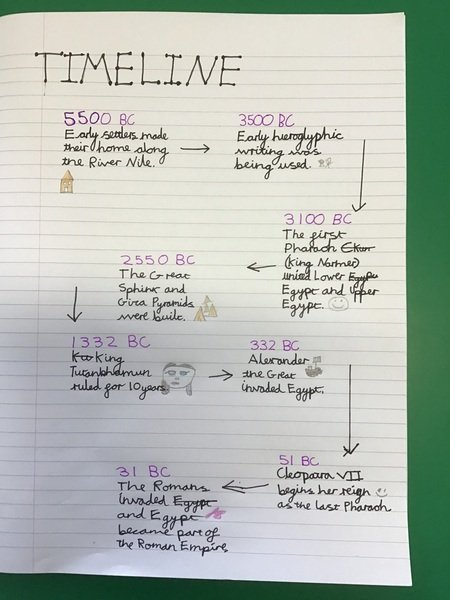 TIMELINE
5500 BC
Early settlers made
their home along
the River Nile.
3500 BC
Early hieroglyphic
writing was
being used.
3100 BC
The first
Pharaoh
(King Narmer)
united Lower
Egypt and Upper
Egypt.
2550 BC
The Great
Sphinx and
Giza Pyramids
were built.
1332 BC
King
Tutankhamun
ruled for 10 years
332 BC
Alexander
the Great
invaded Egypt.
51 BC
Cleopatra VII
begins her reign
as the last Pharaoh.
31 BC
The Romans
invaded Egypt
and Egypt
became part of
the Roman Empire